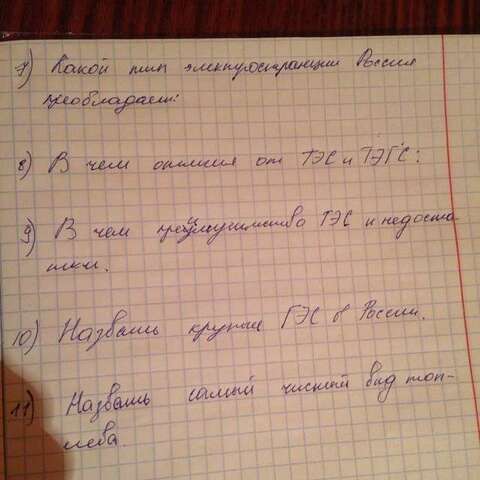 7) Какой тип электростанции Россия
преобладает:
8) В чем отличия от ТЭС и ТЭГС:
9) В чем преймущимства ТЭС и недоста
тки.
10) Назвать крупные ГЭС в России.
11) Назвать самый чистый вид топ-
лева.